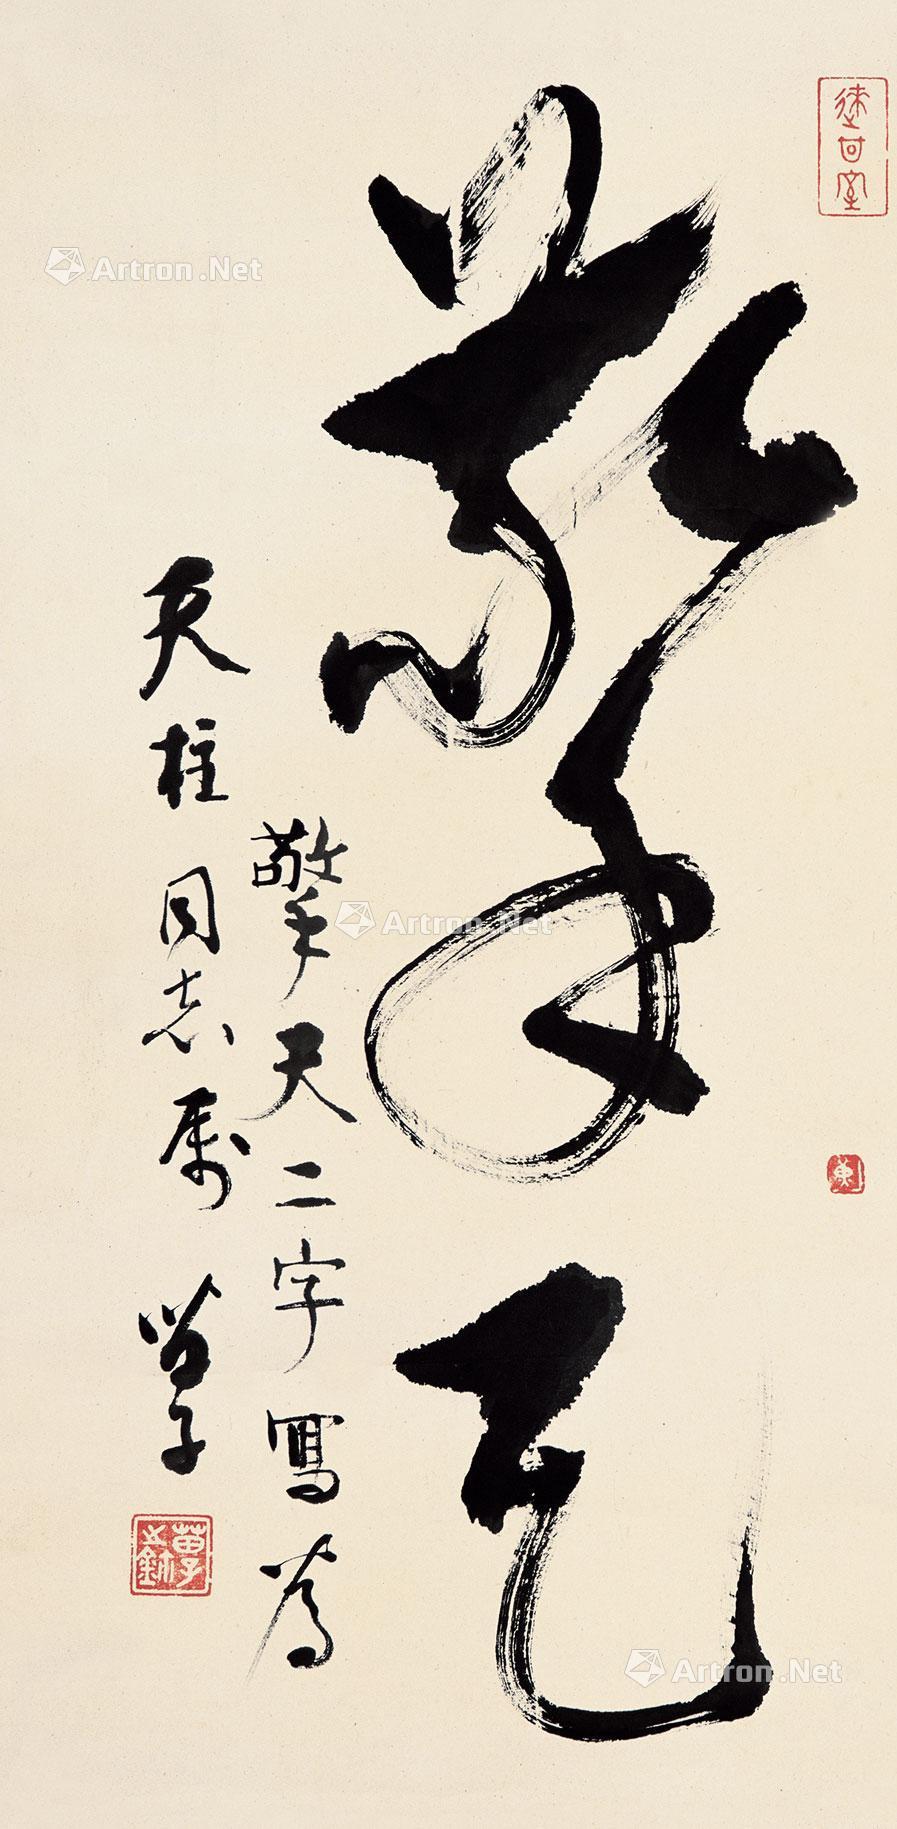 擎天
擎天二字寫爲
天柱同志屬
苗子
苗子
Artron.Net
Artron.Net
Artron.Net